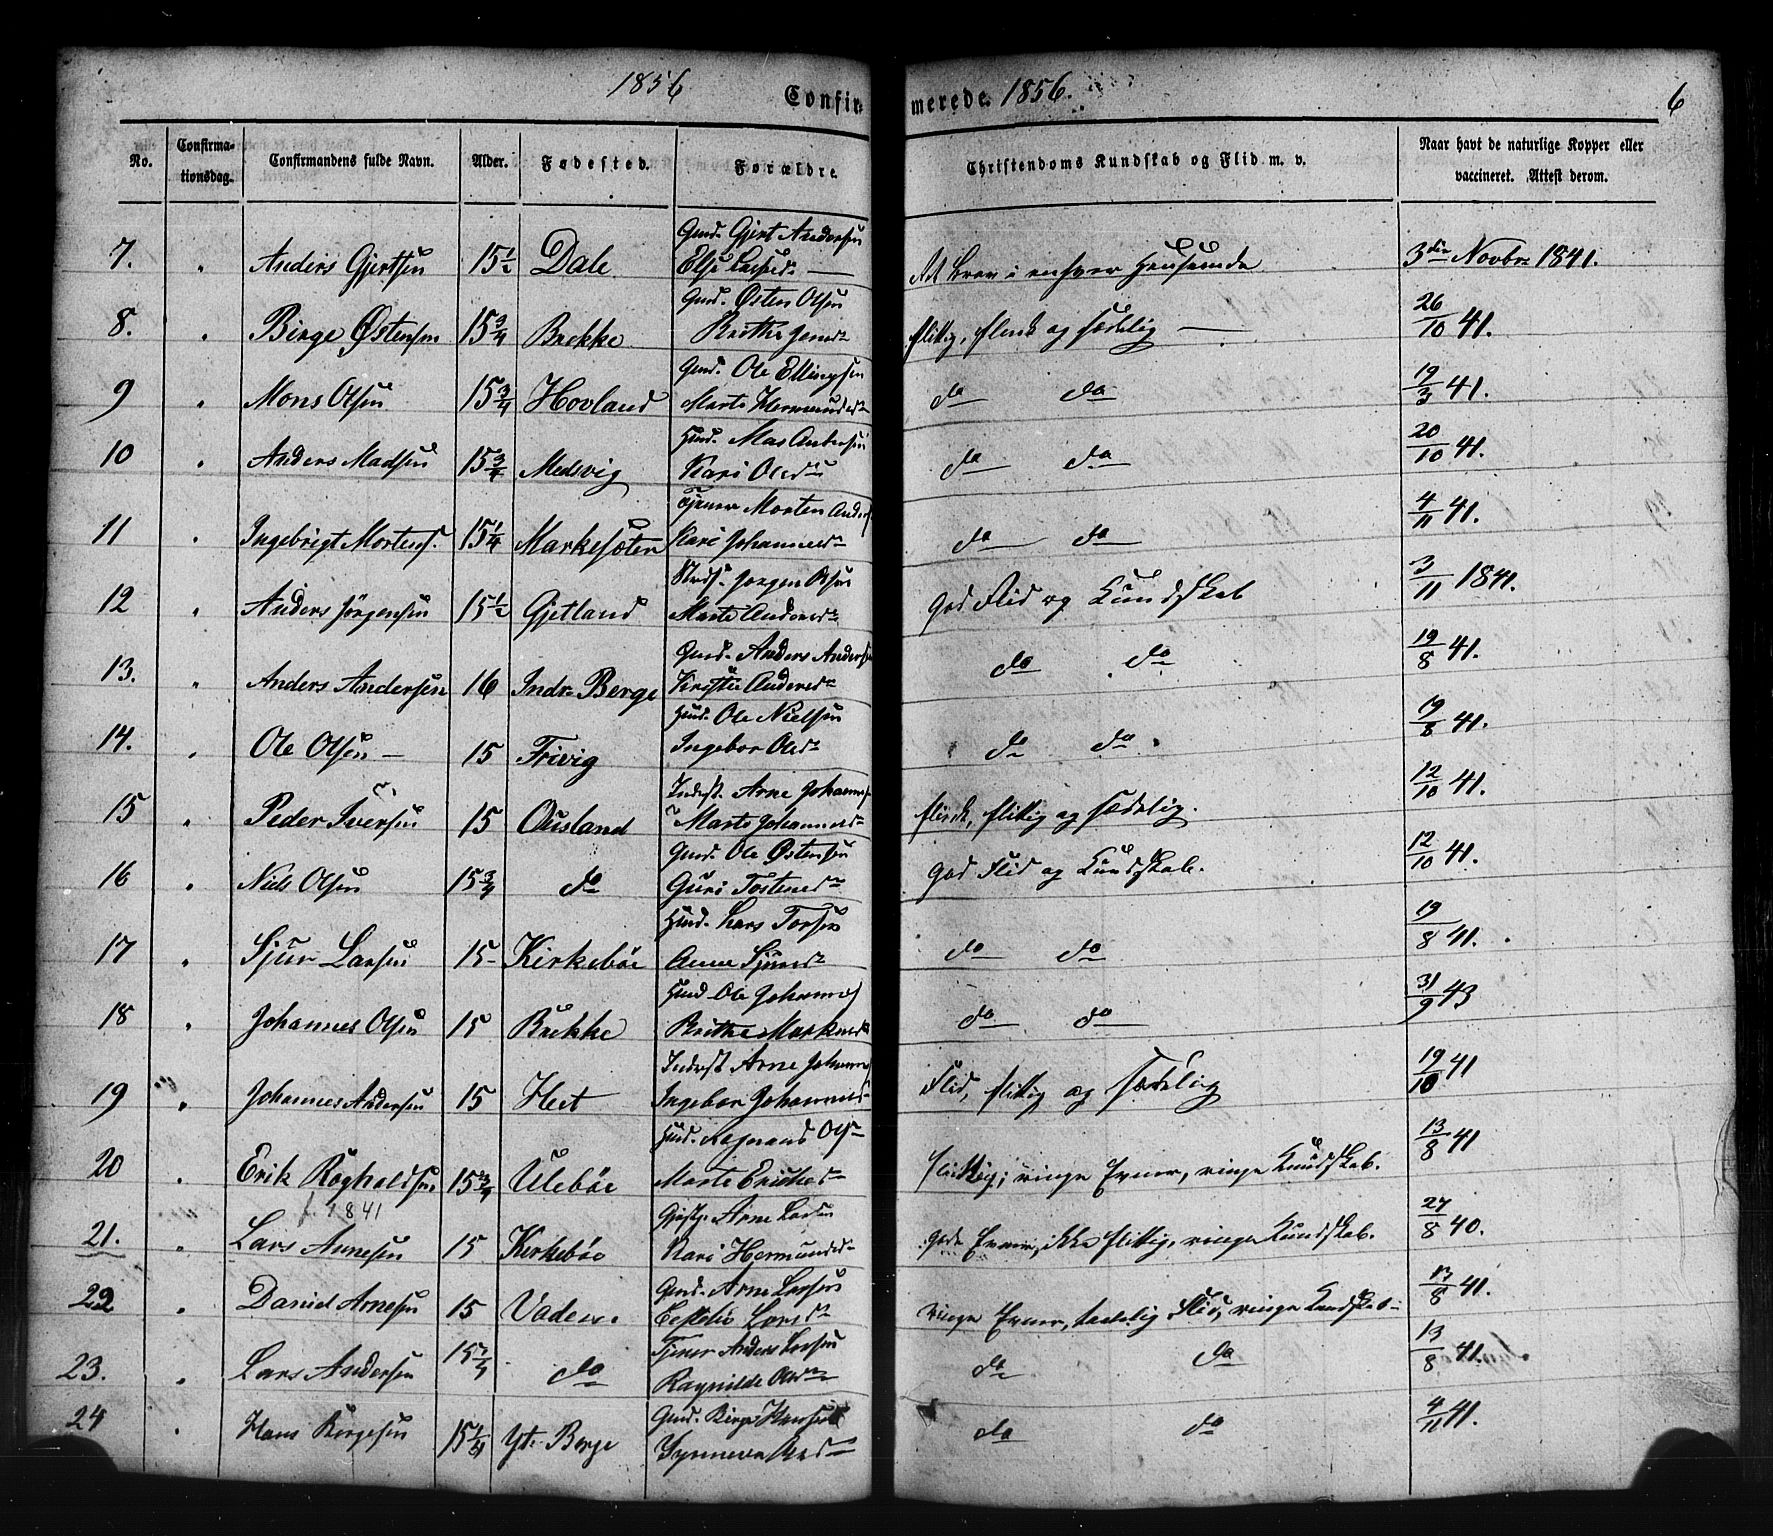 1856 Confirmerede. 1856. 6
No. Confirmationsdag. Confirmandens fulde Navn. Alder. Fødested. Forældre. Christendoms Kundskab og Flid m. v. Naar havt de naturlige Kopper eller vaccineret. Attest derom.
Gmd. Gjert Andersen
7. " Anders Gjertsen 15 1/2 Dale Else i enhver Henseende 3die Novbr 1841.
Gmd. Østen Olsen
8. " Birge Østensen 15 3/4 Brekke Brithe flittig, flink og sædelig 26/10 41.
Gmd. Ole Ellingsen
9 " Mons Olsen 15 3/4 Hovland Marte Hermundsd. do do 19/3 41.
Huusm. Mas Andersen
10 " Anders Madsen 15 3/4 Medsvig Kari Olsd. do do 20/10 41.
Tjener Morten Anders
11 " Ingebrigt Mortens. 15 1/4 Markesæter Kari Johannesd. do do 4/11 41.
Jørgen Olsen
12 " Anders Jørgensen 15 1/2 Gjetland Marte Andersd. God Flid og Kundskab 3/11 1841.
Gmd. Anders Anders
13. " Anders Andersen 16 Indre Berge Kirstie Andersd. do do 19/8 41.
Huusm. Ole Nielsen
14. " Ole Olsen 15 Frivig Ingebor Olsd. do do 19/8 41.
Inderst. Arne Johannes
15 " Peder Iversen 15 Ousland Marte Johannesd. flink, flittig og sædelig. 12/10 41.
Gmd. Ole Østensen
16 " Niels Olsen 15 3/4 do Guri Tostensd. God Flid og Kundskab. 12/10 41.
Huusm. Lars Torsen
17 " Sjur Larsen 15 Kirkebøe Anne Sjursd. do do 19/8 41.
Ole Johannes
18 " Johannes Olsen 15 Brekke Brithe do do 31/9 43
Inderst Arne Johannes
19 " Johannes Andersen 15 Ingebor Johannesd. flittig og sædelig 19/10 41
20 " Erik Rognaldsen 15 3/4 Ulebøe Marte Eriksd. flittig; ringe Evner, ringe Kundskab. 13/8 41
f. 1841
Arne Larsen
21. " Lars Arnesen 15 Kirkebøe Kari Hermundsd. gode Evner, ikke flittig, ringe Kundskab. 27/8 40.
Gmd. Arne Larsen
22 " Daniel Arnesen 15 Vadem. Larsd. ringe Evner, Flid, ringe Kundskab 13/8 41.
Tjener Anders Larsen
23. " Lars Andersen 15 1/4 do Ragnilde Olsd. do do 13/8 41.
Gmd. Birge Hansen
24 " Hans Børgesen 15 1/4 Yt. Berge Synneva do do 4/11 41.